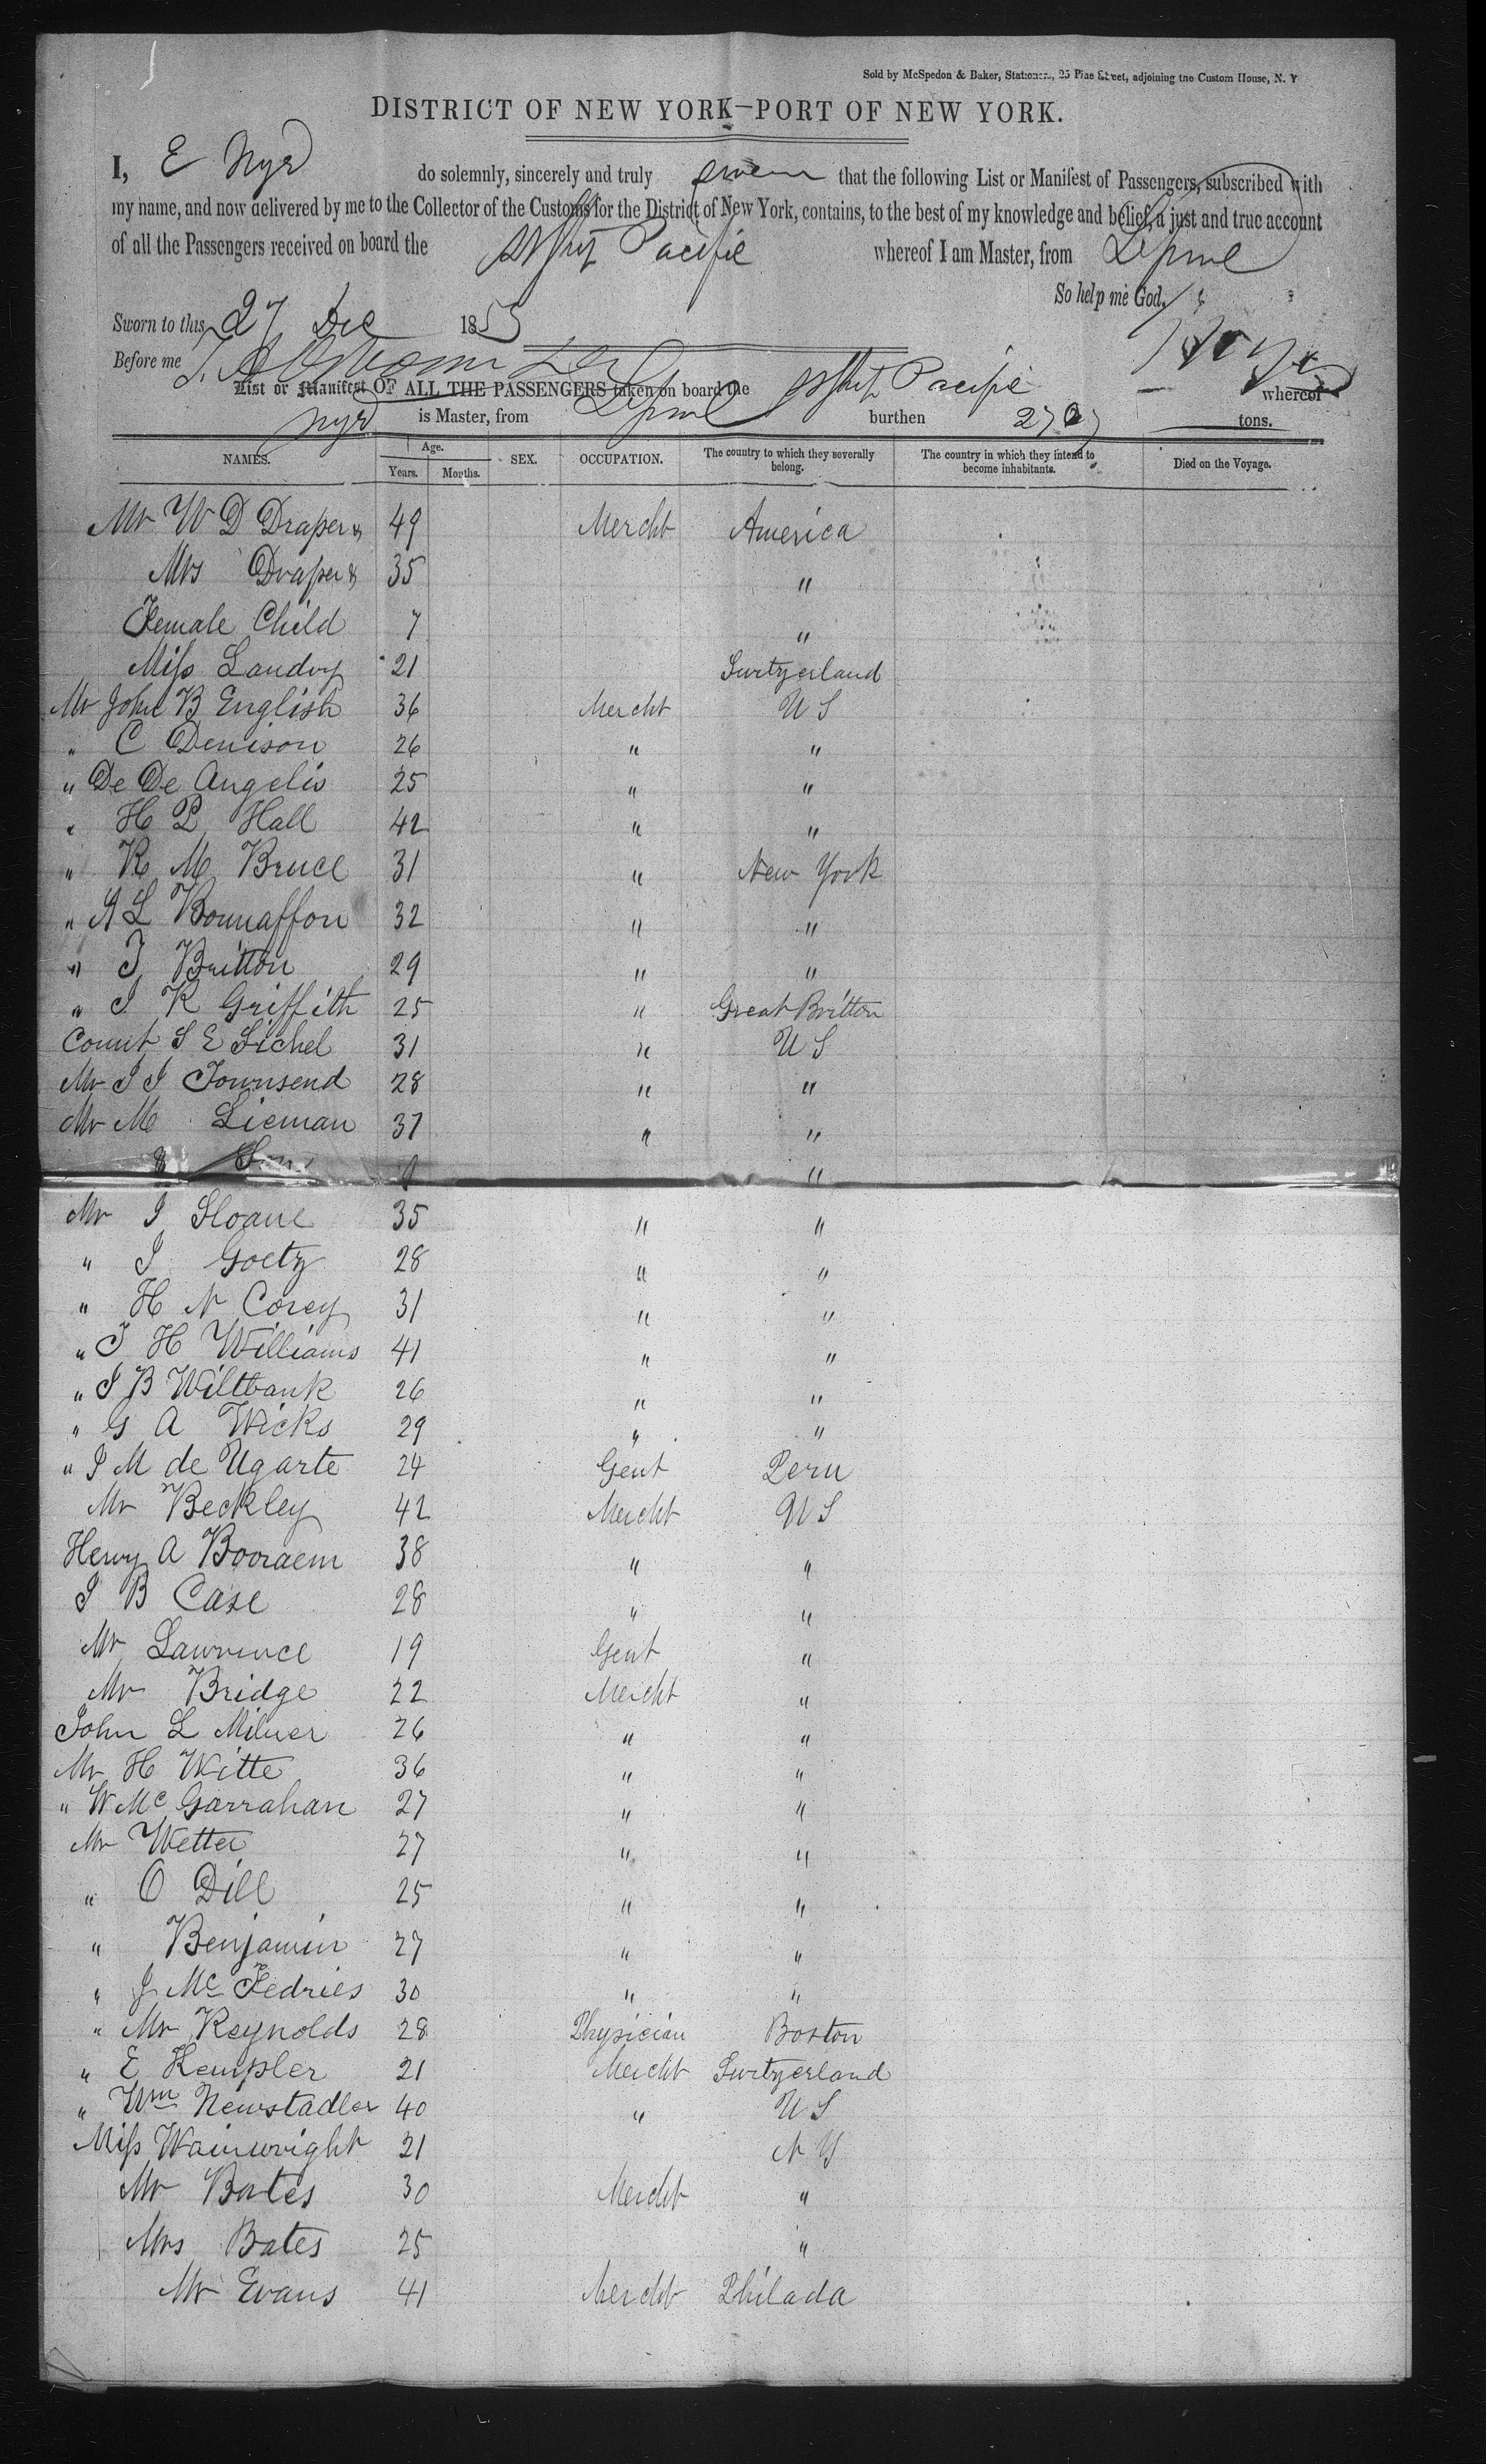 Sold by McSpedon & Baker, Stationers, 25 Pine Street, adjoining the Custom House, N. Y
DISTRICT OF NEW YORK—PORT OF NEW YORK.
I, E Nye do solemnly, sincerely and truly swear that the following List or Manifest of Passengers, subscribed with
my name, and now delivered by me to the Collector of the Customs for the District of New York, contains, to the best of my knowledge and belief, a just and true account
of all the Passengers received on board the Pacific whereof I am Master, from Lpool
So help me God.
Sworn to this 27 Dec 1853
Before me
List or Manifest OF ALL THE PASSENGERS taken on board the Pacific whereof
Nye is Master, from Lpool burthen 2707 tons.
NAMES. Age. Years. Months. SEX. OCCUPATION. The country to which they severally belong. The country in which they intend to become inhabitants. Died on the Voyage.
Mr W D Draper & 49 Mercht America
Mrs Draper & 35 "
Female Child 7 "
Miss Landry 21 Switzerland
Mr John B English 36 Mercht U S
" C Denison 26 " "
" De De Angelis 25 " "
" H P Hall 42 " "
" R M Bruce 31 " New York
" A L Bonnaffon 32 " "
" J Britton 29 " "
" J R Griffith 25 " Great Britton
Count S E Sichel 31 " U S
Mr J J Townsend 28 " "
Mr M Lieman 37 " "
& Son "
Mr J Sloane 35 " "
" J Goetz 28 " "
" H N Corey 31 " "
" J H Williams 41 " "
" J B Wiltbank 26 " "
" G A Wicks 29 " "
" J M de Ugarte 24 Gent Peru
Mr Beckley 42 Mercht U S
Henry A Booraem 38 " "
J B Case 28 " "
Mr Lawrence 19 Gent "
Mr Bridge 22 Mercht "
John L Milner 26 " "
Mr H Witte 36 " "
" W Mc Garrahan 27 " "
Mr Wetter 27 " "
" O Dill 25 " "
" Benjamin 27 " "
" J Mc Fedries 30 " "
" Mr Reynolds 28 Physician Boston
" E Kempler 21 Mercht Switzerland
" Wm Newstadler 40 " U S
Miss Wainwright 21 N Y
Mr Bates 30 Mercht "
Mrs Bates 25 "
Mr Evans 41 Mercht Philada